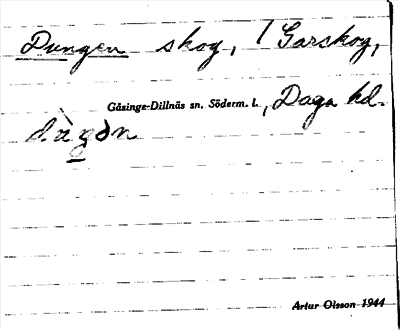 Dungen skog, / Garskog,
Gåsinge-Dillnäs sn, Söderm. l., Daga hd.
Artur Olsson 1944